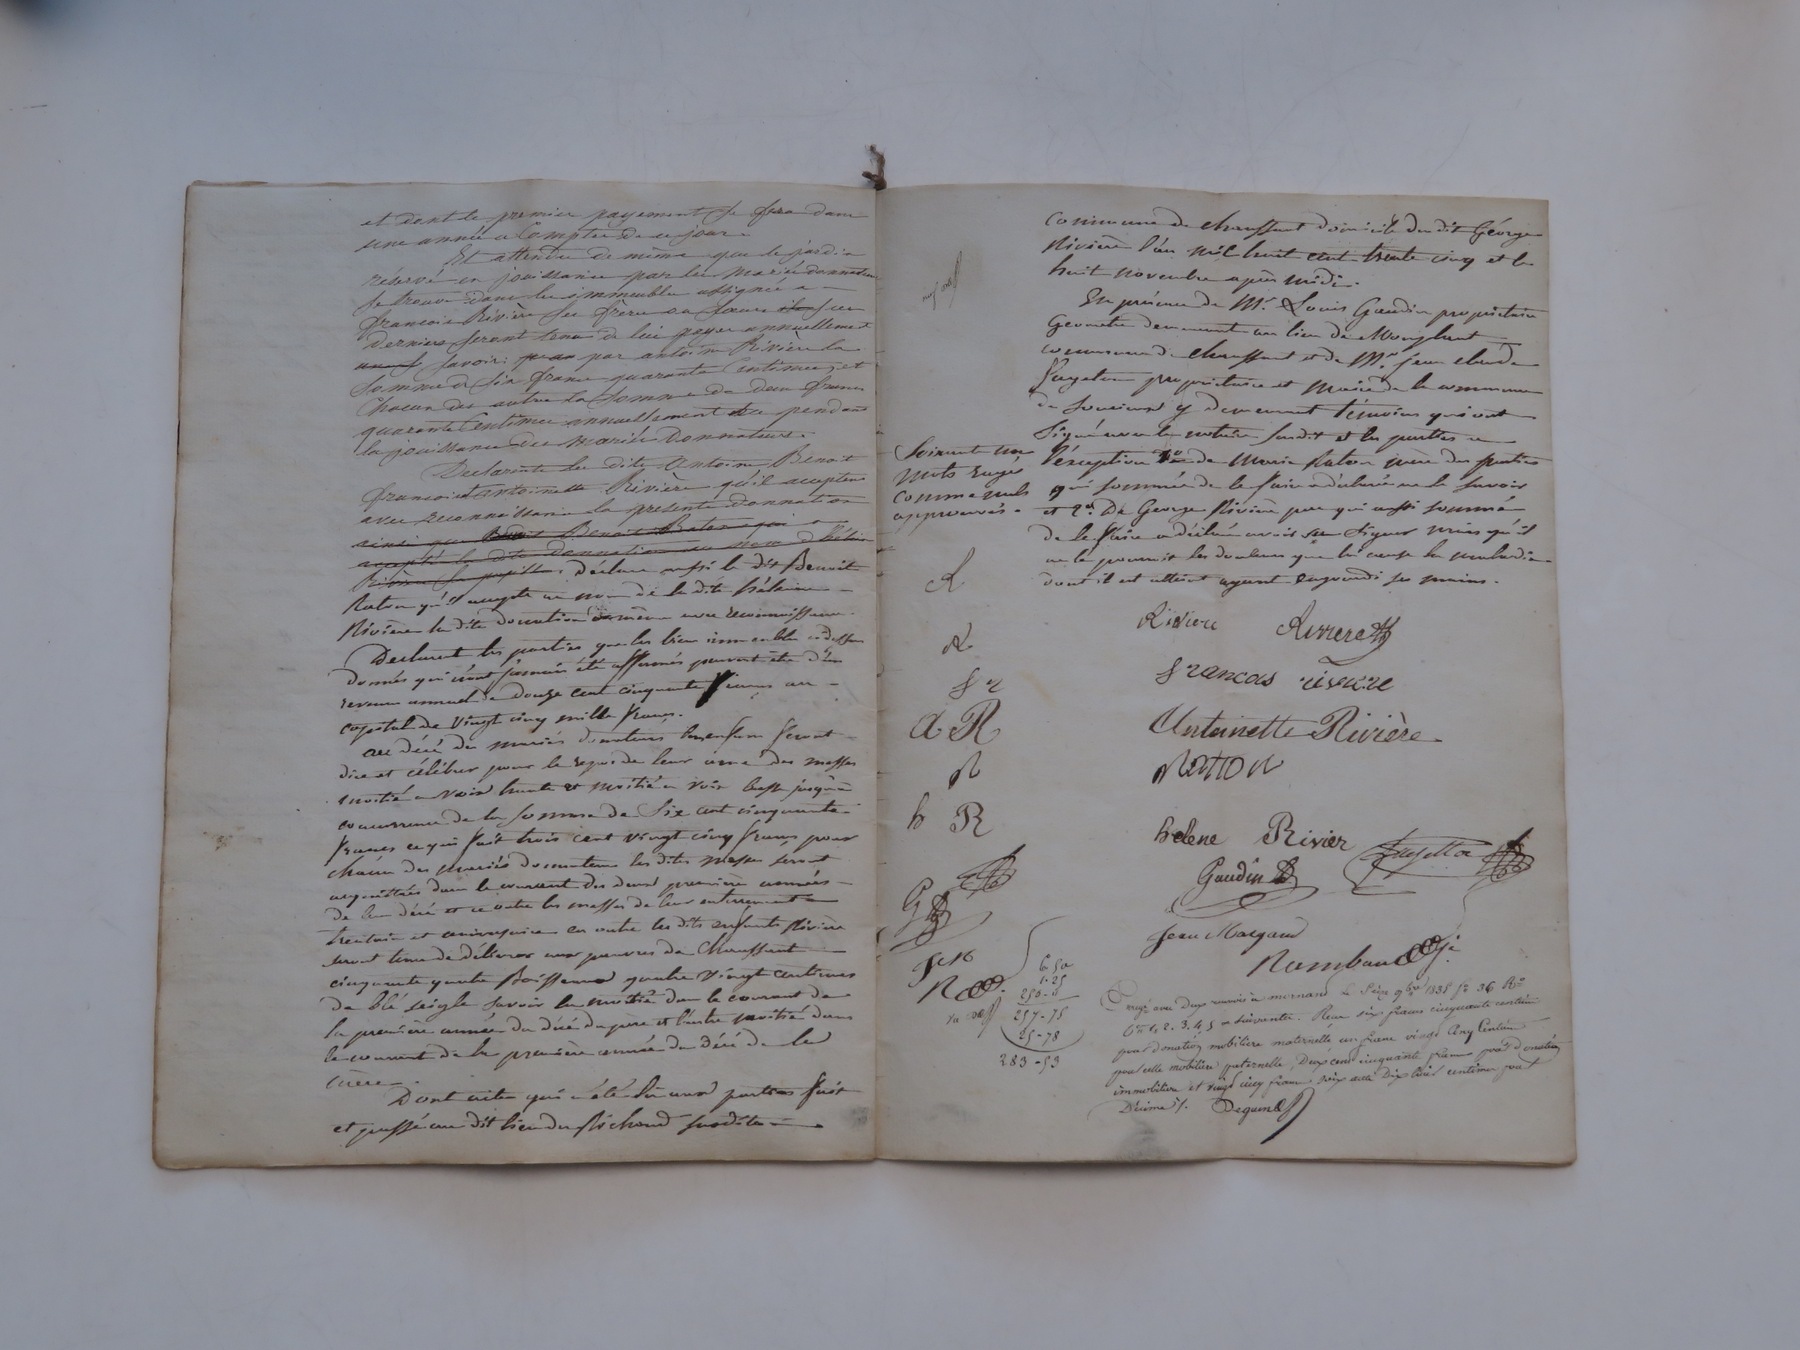 et dont le premier payement se fera dans
une année a Compter de ce jour.
Et attendu de même que le jardin
réservé en jouissance par les mariés donnateurs
se trouve dans les immeubles assignés a
francois Rivière ses frères ou sœurs ces
derniers seront tenus de lui payer annuellement
savoir: par antoine Rivière la
somme de six francs quarante Centimes et
Chacun des autres la somme de deux francs
quarante Centimes annuellement et ce pendant
la jouissance des mariés Donnateurs.
Declarent les dits Antoine Benoit
francois et antoinette Rivière qu'il acceptent
avec reconnaissance la presente donnation
ainsi que Benoit Raton qui
accepte la dite donnation au nom d'hélène
Rivière sa pupille. Déclare aussi le dit Benoit
Raton qu'il accepte au nom de la dite hélène
Rivière la dite donnation avec reconnoissance
Declarent les parties que les biens immeubles cidessus
donnés qui n'ont jamais été affermés peuvent être d'un
revenu annuel de douze cent cinquante francs au
capital de vingt cinq mille francs.
au décé des mariés donateurs les enfans feront
dire et célébrer pour le repos de leur ame des messes
moitié a voix haute et moitié a voix basse jusqu'a
concurrence de la somme de Six cent cinquante
francs ce qui fait trois cent vingt cinq francs pour
chacun des mariés donnateurs les dites messes seront
acquittées dans le courant des deux première années
de leur décé et ce outre les messes de leur enterrement
trentain et anniversaire en outre les dits enfants Rivière
seront tenus de délivrer aux pauvres de Chaussant
cinquante quatre Boisseaux quatre vingt centimes
de blé seigle savoir la moitié dans le courant de
la première année du décé du père et l'autre moitié dans
le courant de la première année du décé de la
mère.
Dont acte qui a été lu aux parties fait
et passé au dit lieu du Richoud susdite
commune de chaussant domicile du dit George
Rivière l'an mil huit cent trente cinq et le
huit novembre après midi.
En présence de Mr. Louis Gaudin propriétaire
Geometre demeurant au lieu de
commune de chaussant et de Mr. Jean claude
propriétaire et Maire de la commune
de y demeurant témoins qui ont
signé avec le notaire susdit et les parties a
l'exception 1o de Marie Raton mère des parties
qui sommée de le faire a déclaré ne le savoir
et 2o De George Rivière père qui aussi sommé
de le faire a déclaré avoir su signer mais qu'il
ne le pourroit les douleurs que lui cause la maladie
dont il est atteint ayant engourdi ses mains.
Soixante un
mots rayés
comme nuls
approuvés.
R
R
f r
A R
R
h R
G
J e M
R
Riviere Riviere
francois riviere
Antoinette Rivière
RATTON
helene Rivier
Gaudin
Jean Margand
Rambaud
6-50
1-25
250-0
257-75
25-78
283-53
Enregé avec deux renvois a mornand le Seize 9bre 1835 fo 36 Ro
Cses 1, 2, 3, 4, 5 et suivantes. Reçu six francs cinquante centimes
pour donation mobilière maternelle, un franc vingt Cinq Centimes
pour celle mobilière paternelle, Deux cent cinquante francs pour donation
immobilière et vingt cinq francs soixante Dix huit centimes pour
Décime